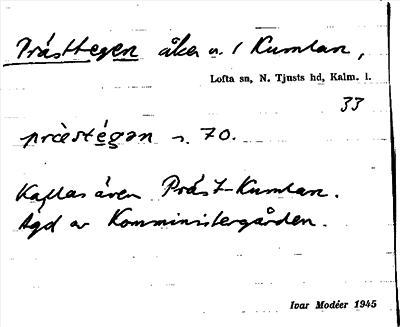 Prästtegen åker n. i Kumlan,
Lofta sn, N. Tjnsts hd, Kalm. l.
33
præ̀stégan s. 70.
Kallas även Präst-Kumlan.
Ägd av Komministergården.
Ivar Modéer 1945